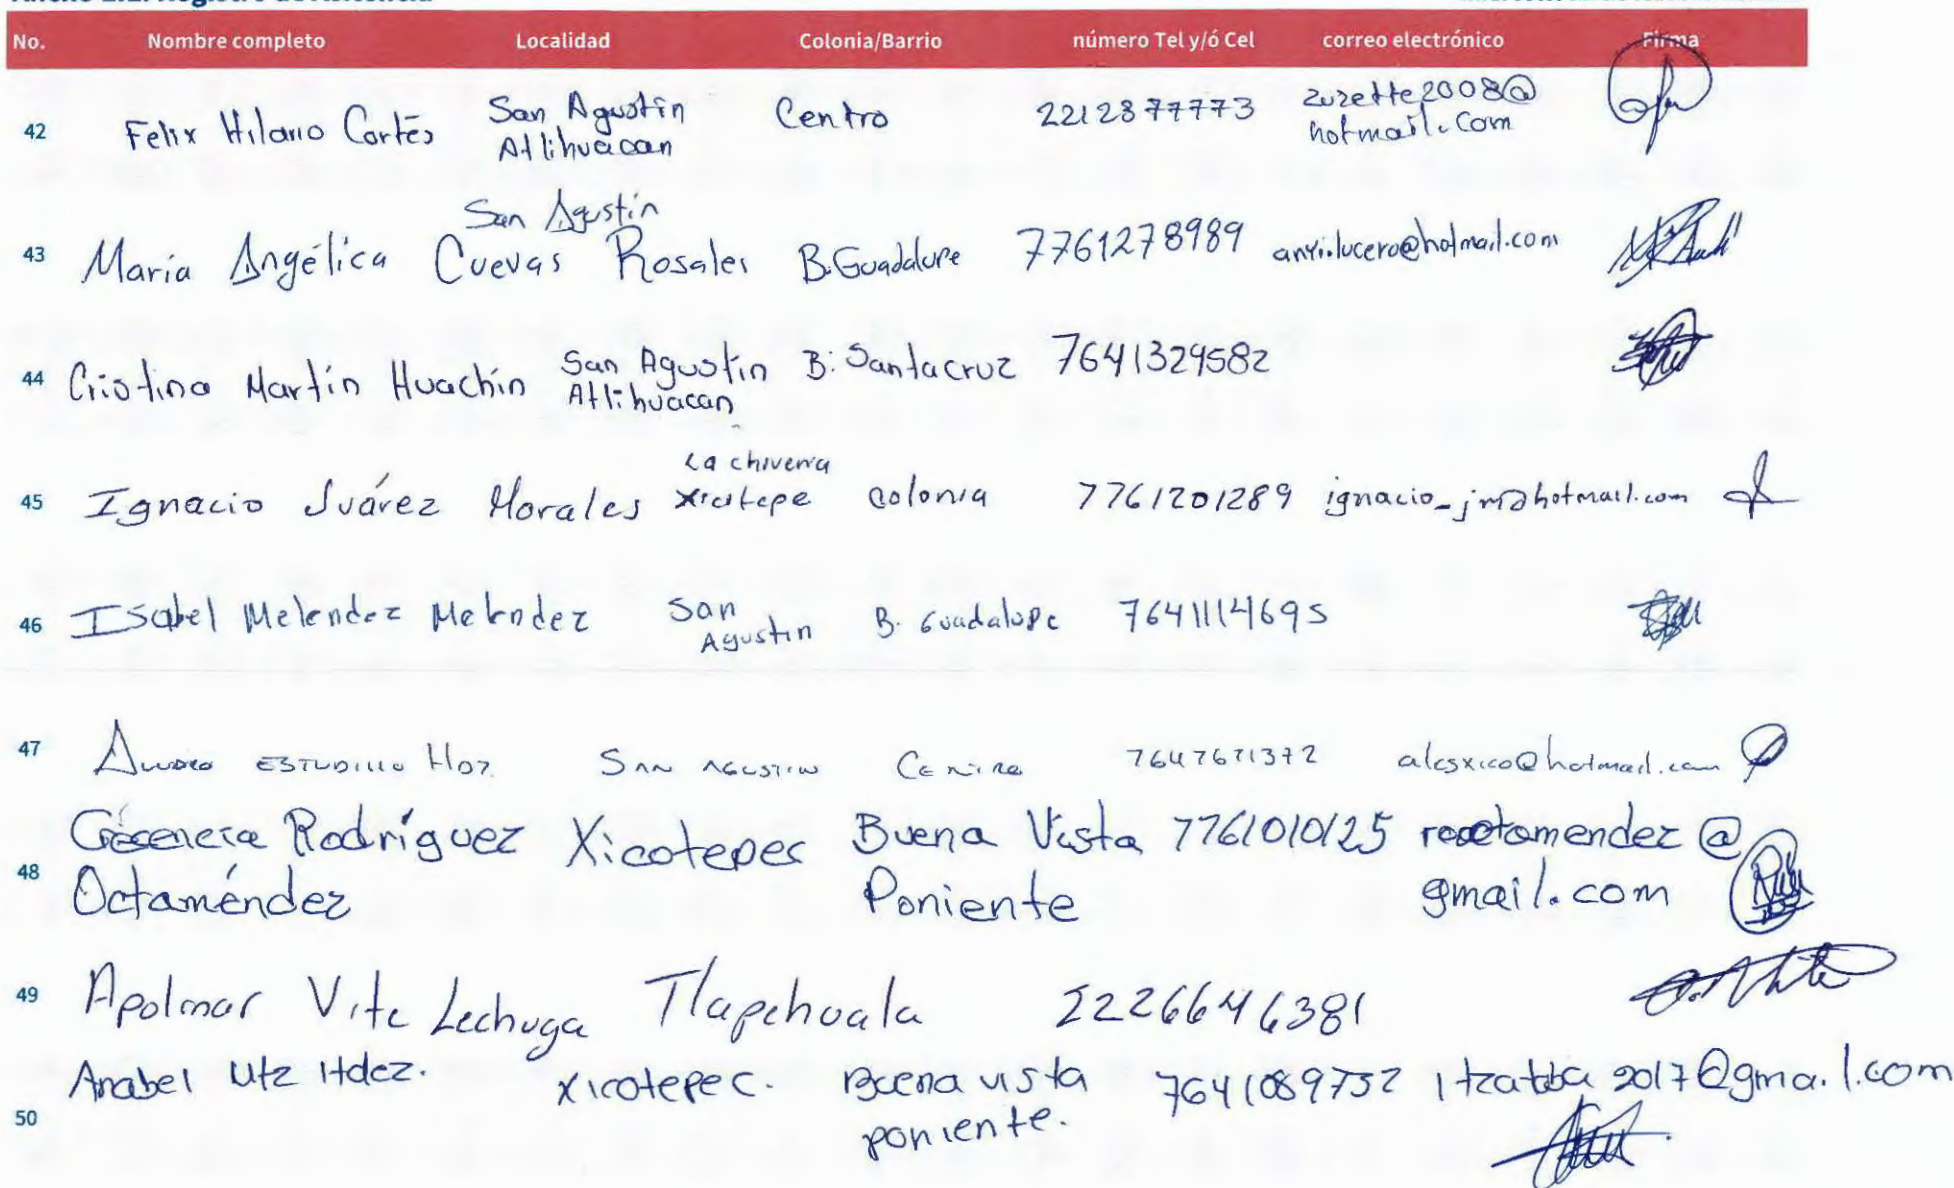 No. Nombre completo Localidad Colonia/Barrio número Tel y/ó Cel correo electrónico Firma
42 Felix Hilario Cortés San Agustín Atlihuacan Centro 2212877773 zuzette2008@hotmail.com
43 María Angélica Cuevas Rosales San Agustín B. Guadalupe 7761278989 anyi.lucero@hotmail.com
44 Cristina Martín Huachín San Agustin Atlihuacan B. Santacruz 7641329582
45 Ignacio Juárez Morales La chivería Xicotepe colonia 7761201289 ignacio_jm@hotmail.com
46 Isabel Melendez Melendez San Agustin B. Guadalupe 7641114695
47 ESTUDILLO SAN AGUSTIN CENTRO alesxico@hotmail.com
48 Rodríguez Octaméndez Xicotepec Buena Vista Poniente 7761010125 gmail.com
49 Apolinar Vite Lechuga Tlapehuala 2226646381
50 Anabel Utz Hdez. Xicotepec. Buena vista poniente. 7641089732